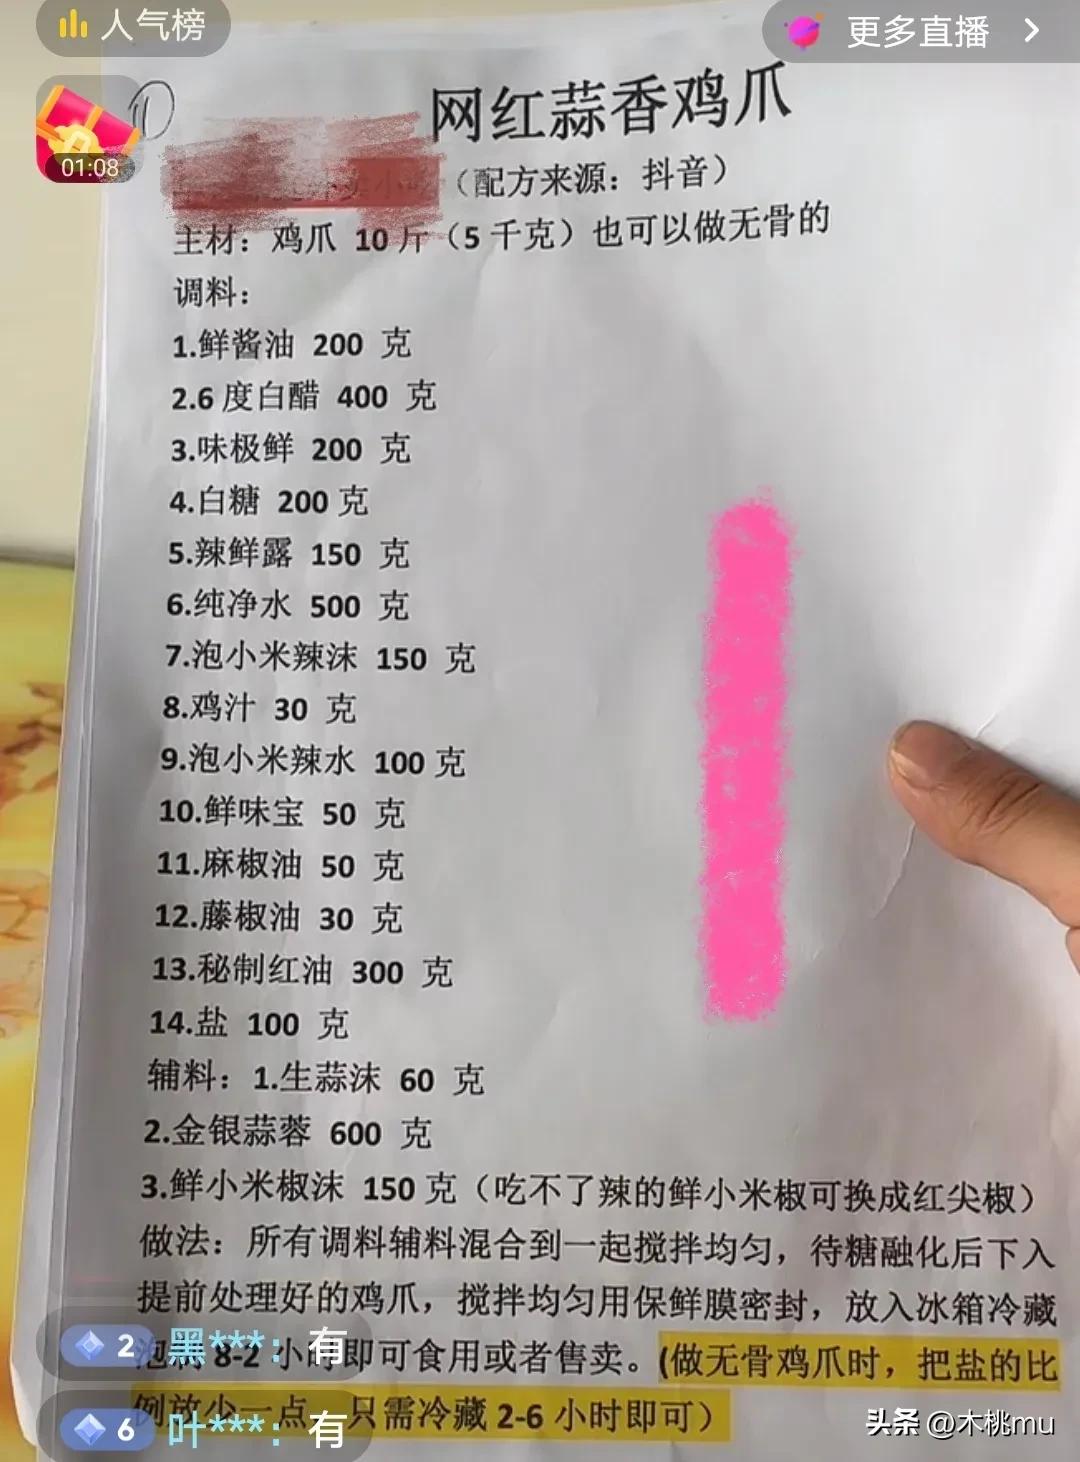 人气榜
更多直播
01:08
网红蒜香鸡爪
（配方来源：抖音）
主材：鸡爪 10 斤（5 千克）也可以做无骨的
调料：
1.鲜酱油 200 克
2.6 度白醋 400 克
3.味极鲜 200 克
4.白糖 200 克
5.辣鲜露 150 克
6.纯净水 500 克
7.泡小米辣沫 150 克
8.鸡汁 30 克
9.泡小米辣水 100 克
10.鲜味宝 50 克
11.麻椒油 50 克
12.藤椒油 30 克
13.秘制红油 300 克
14.盐 100 克
辅料：1.生蒜沫 60 克
2.金银蒜蓉 600 克
3.鲜小米椒沫 150 克（吃不了辣的鲜小米椒可换成红尖椒）
做法：所有调料辅料混合到一起搅拌均匀，待糖融化后下入
提前处理好的鸡爪，搅拌均匀用保鲜膜密封，放入冰箱冷藏
8-2 小时即可食用或者售卖。(做无骨鸡爪时，把盐的比
2 黑***：有
例放少一点 只需冷藏 2-6 小时即可）
6 叶***：有
头条 @木桃mu